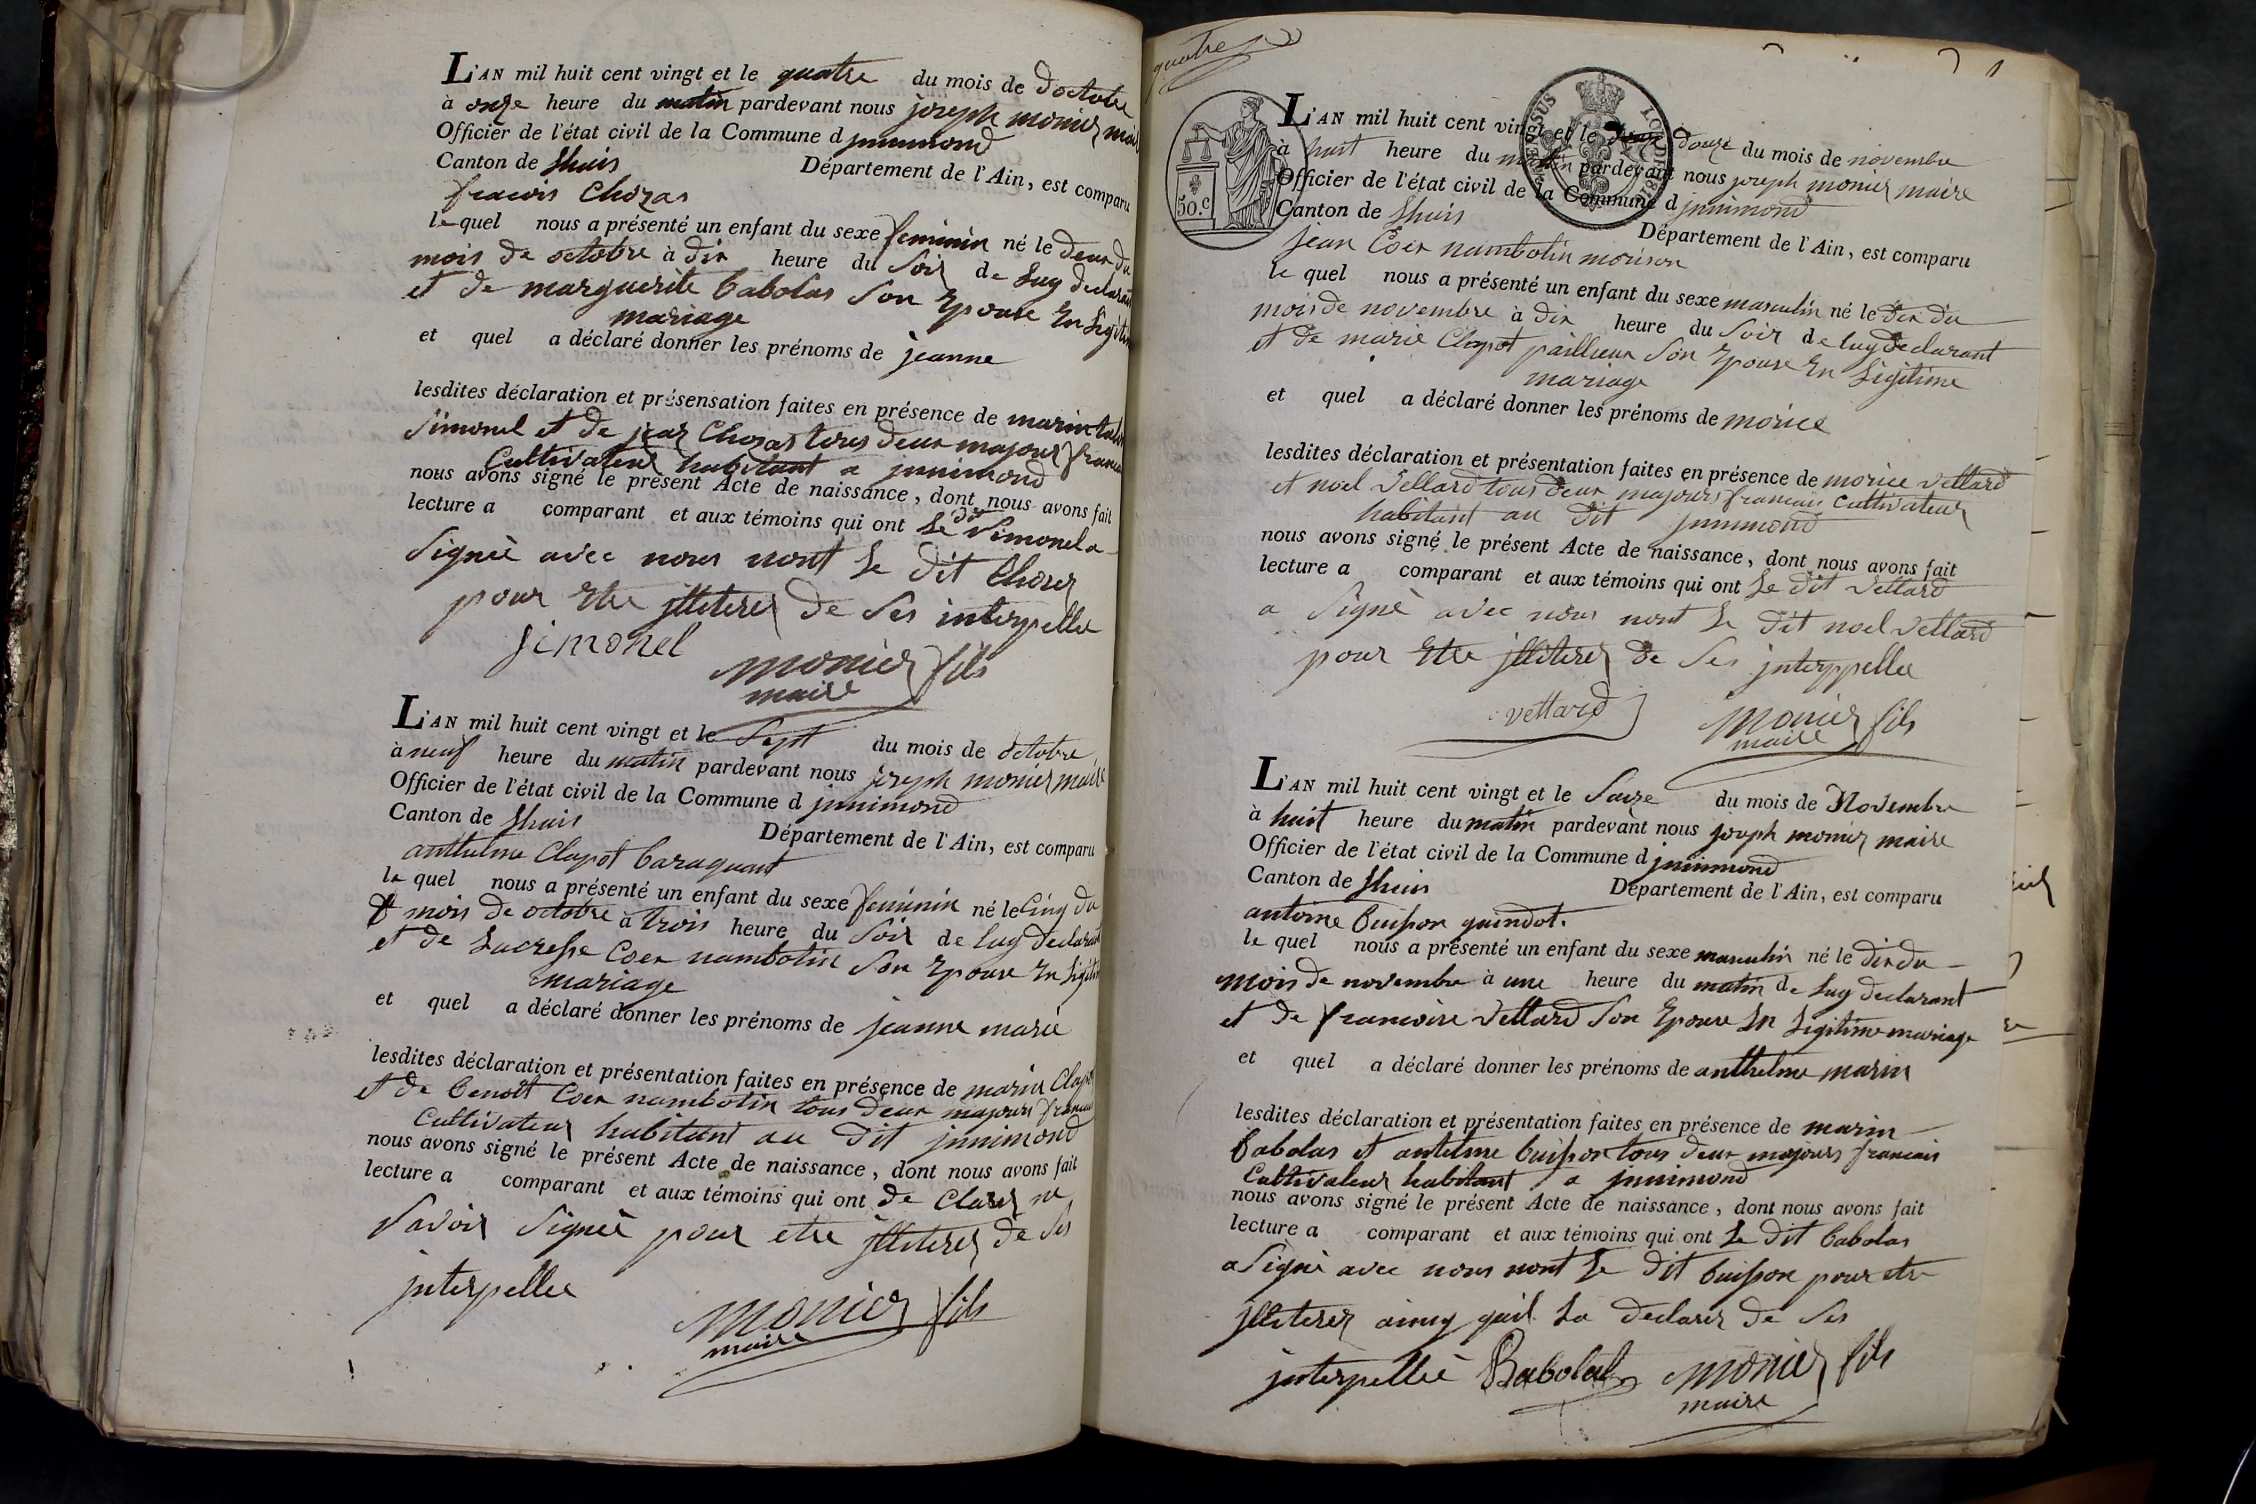 L'AN mil huit cent vingt et le quatre du mois de doctobre
à onze heure du matin pardevant nous joseph monier maire
Officier de l'état civil de la Commune d jnnimond
Canton de Lhuis Département de l'Ain, est comparu
francois Chozas
le quel nous a présenté un enfant du sexe feminin né le deux du
mois de octobre à dix heure du Soir de Luy declarant
et de marguerite babolas Son Epouse En Légitime
mariage
et quel a déclaré donner les prénoms de jeanne
lesdites déclaration et présensation faites en présence de marin
Simonel et de jean Chozas tous deux majours francais
Cultivateur habitant a jnnimond
nous avons signé le présent Acte de naissance, dont nous avons fait
lecture a comparant et aux témoins qui ont Le dit Simonel a
Signèe avec nous nont Le dit Chozes
pour Etre jlliterer de Ses interpellee
Simonel
monier fils
maire
L'AN mil huit cent vingt et le Sept du mois de octobre
à neuf heure du matin pardevant nous joseph monier maire
Officier de l'état civil de la Commune d jnnimond
Canton de Lhuis Département de l'Ain, est comparu
anthelme Clapot baraquant
le quel nous a présenté un enfant du sexe feminin né le Cinq du
mois de octobre à trois heure du Soir de Luy declarant
et de Lucresse Coex nambotin Son Epouse En Légitime
mariage
et quel a déclaré donner les prénoms de jeanne marie
lesdites déclaration et présentation faites en présence de marin Clapot
et de benoit Coex nambotin tous deux majours francais
Cultivateur habitant au dit jnnimond
nous avons signé le présent Acte de naissance, dont nous avons fait
lecture a comparant et aux témoins qui ont de Clarer ne
Savoir Signèe pour etre jlliterer de Ses
jnterpellee
monier fils
maire
quatre
50.c
L'AN mil huit cent vingt et le douze du mois de novembre
à huit heure du matin pardevant nous joseph monier maire
Officier de l'état civil de la Commune d jnnimond
Canton de Lhuis Département de l'Ain, est comparu
jean Coex nambotin monson
le quel nous a présenté un enfant du sexe masculin né le dix du
mois de novembre à dix heure du Soir de Luy declarant
et de marie Clapot pailleux Son Epouse En Légitime
mariage
et quel a déclaré donner les prénoms de morice
lesdites déclaration et présentation faites en présence de morice vettard
et noel Vettard tous deux majours francais Cultivateur
habitant au dit jnnimond
nous avons signé le présent Acte de naissance, dont nous avons fait
lecture a comparant et aux témoins qui ont Le dit Vettard
a Signè avec nous nont Le dit noel Vettard
pour Etre jlliterer de Ses jnterppellee
vettard
monier fils
maire
L'AN mil huit cent vingt et le Saize du mois de Novembre
à huit heure du matin pardevant nous joseph monier maire
Officier de l'état civil de la Commune d jnnimond
Canton de Lhuis Département de l'Ain, est comparu
antoine buisson guindot.
le quel nous a présenté un enfant du sexe masculin né le dix du
mois de novembre à une heure du matin de Luy declarant
et de francoise Vettard Son Epouse En Legitime mariage
et quel a déclaré donner les prénoms de anthelme marin
lesdites déclaration et présentation faites en présence de marin
babolas et antelme buisson tous deux majours francais
Cultivateur habitant a jnnimond
nous avons signé le présent Acte de naissance, dont nous avons fait
lecture a comparant et aux témoins qui ont Le dit babolas
a Signè avec nous nont Le dit buisson pour etre
jlliterer aincy quil La declarer de Ses
jnterpellèe Babolat monier fils
maire